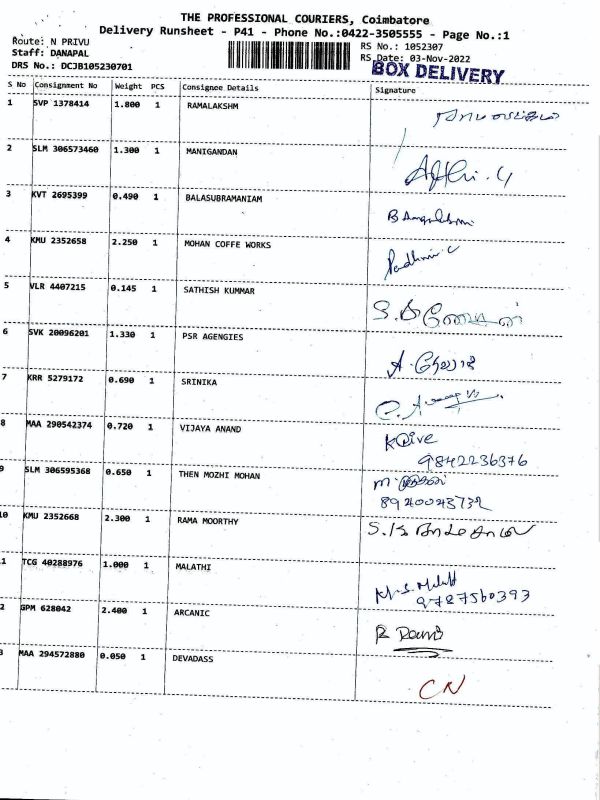 THE PROFESSIONAL COURIERS, Coimbatore
Delivery Runsheet - P41 - Phone No.:0422-3505555 - Page No.:1
Route: N PRIVU
RS No.: 1052307
Staff: DANAPAL
RS Date: 03-Nov-2022
DRS No.: DCJB105230701
BOX DELIVERY
S No Consignment No Weight PCS Consignee Details Signature
1 SVP 1378414 1.800 1 RAMALAKSHM
2 SLM 306573460 1.300 1 MANIGANDAN
3 KVT 2695399 0.490 1 BALASUBRAMANIAM
4 KMU 2352658 2.250 1 MOHAN COFFE WORKS
5 VLR 4407215 0.145 1 SATHISH KUMMAR
6 SVK 20096201 1.330 1 PSR AGENGIES
7 KRR 5279172 0.690 1 SRINIKA
8 MAA 290542374 0.720 1 VIJAYA ANAND
9842236376
9 SLM 306595368 0.650 1 THEN MOZHI MOHAN
10 KMU 2352668 2.300 1 RAMA MOORTHY
1 TCG 40288976 1.000 1 MALATHI
9787560393
2 GPM 628042 2.400 1 ARCANIC
3 MAA 294572880 0.050 1 DEVADASS
CN